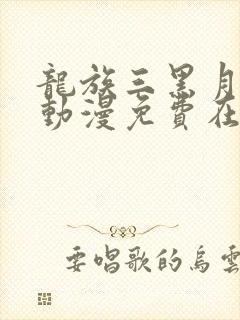 龍族三黑月
動漫免費在
要唱歌的烏雲